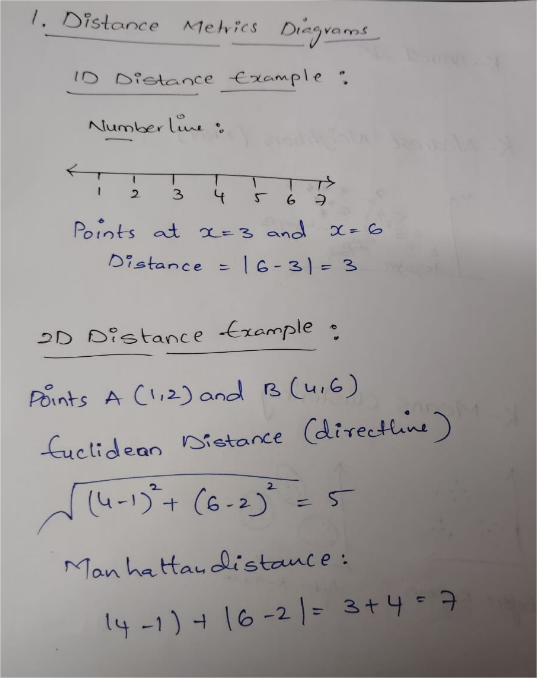 1. Distance Metrics Diagrams
1D Distance Example :
Number line :
1 2 3 4 5 6 7
Points at x=3 and x=6
Distance = |6-3| = 3
2D Distance Example :
Points A (1,2) and B (4,6)
Euclidean Distance (directline)
√(4-1)² + (6-2)² = 5
Manhattan distance :
|4-1) + |6-2| = 3+4 = 7